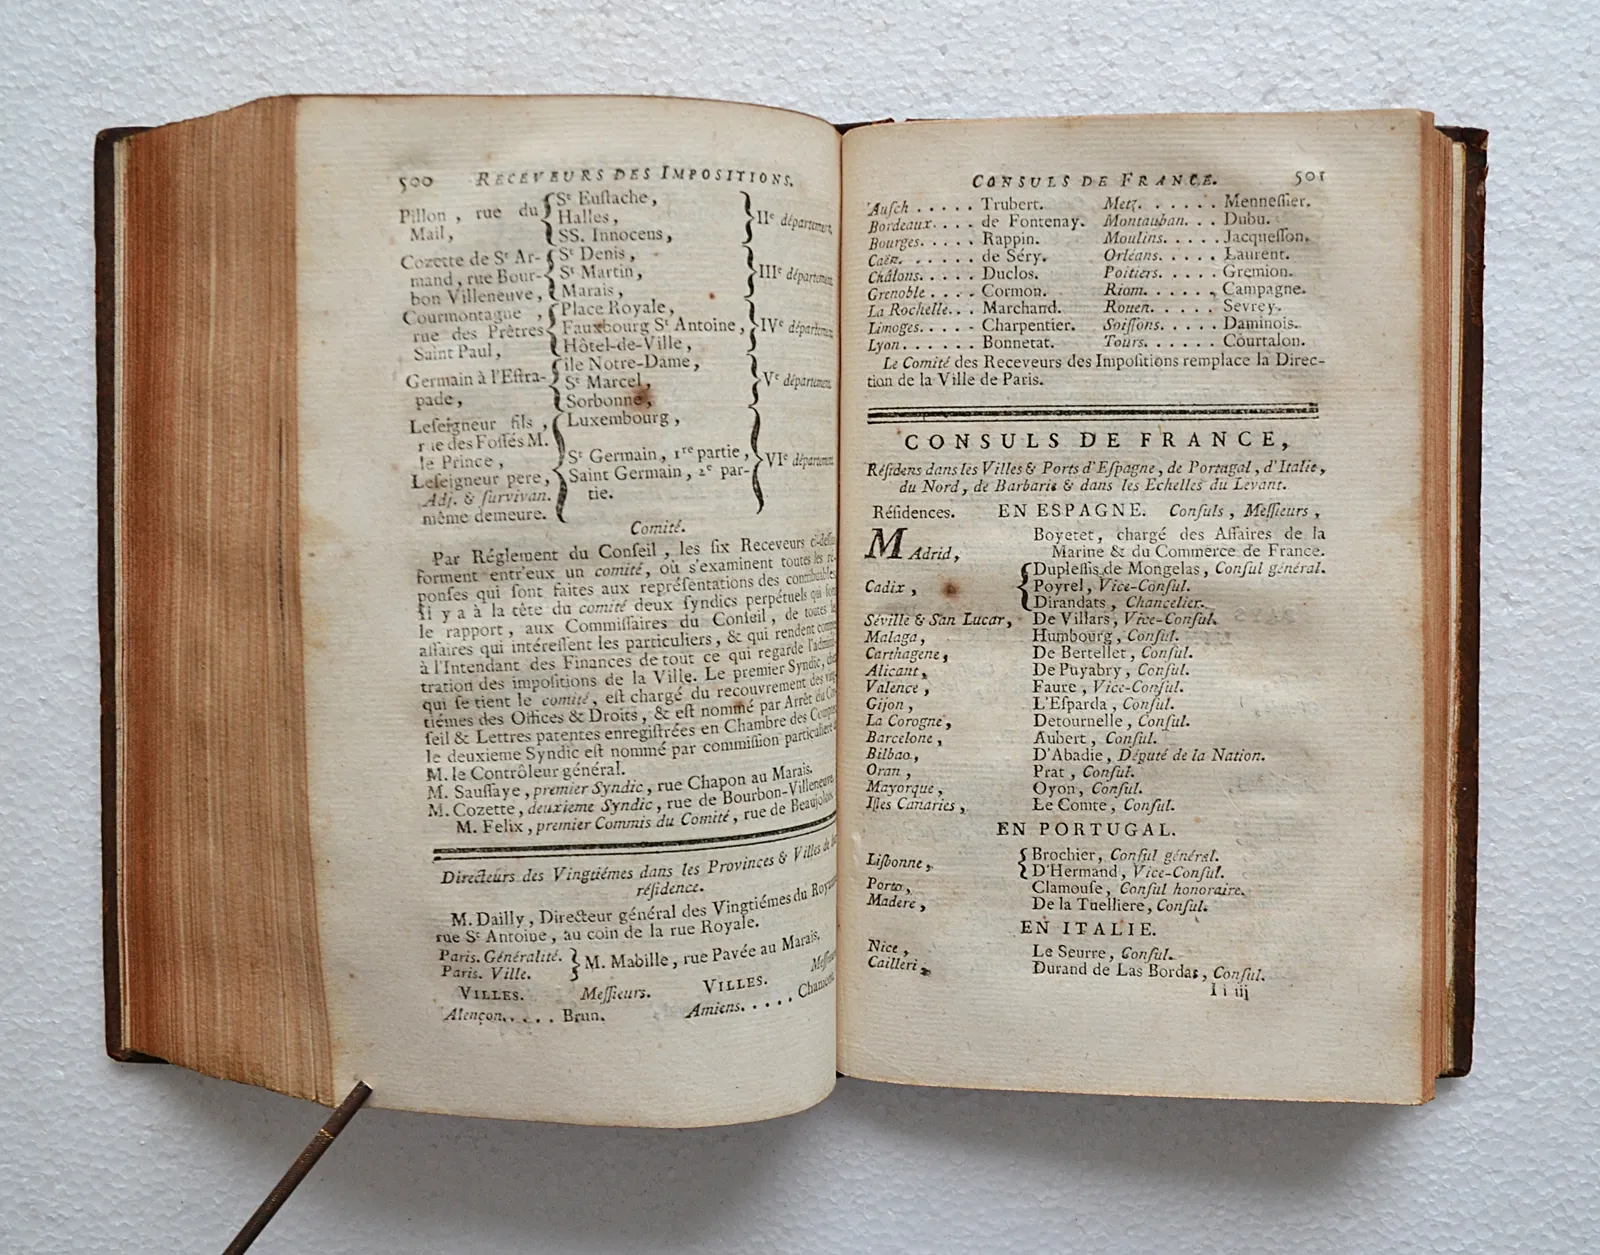 500 RECEVEURS DES IMPOSITIONS.
Pillon, rue du Mail, { Sᵗ Euſtache,
Halles,
SS. Innocens, } IIᵉ département.
Cozette de Sᵗ Ar-
mand, rue Bour-
bon Villeneuve, { Sᵗ Denis,
Sᵗ Martin,
Marais, } IIIᵉ département.
Courmontagne,
rue des Prêtres
Saint Paul, { Place Royale,
Fauxbourg Sᵗ Antoine,
Hôtel-de-Ville, } IVᵉ département.
Germain à l'Eſtra-
pade, { île Notre-Dame,
Sᵗ Marcel,
Sorbonne, } Vᵉ département.
Leſeigneur fils,
rue des Foſſés M.
le Prince,
Leſeigneur pere,
Adj. & ſurvivan.
même demeure. { Luxembourg,
Sᵗ Germain, 1ʳᵉ partie,
Saint Germain, 2ᵉ par-
tie. } VIᵉ département.
Comité.
Par Réglement du Conſeil, les ſix Receveurs ci-deſſus
forment entr'eux un comité, où s'examinent toutes les ré-
ponſes qui ſont faites aux repréſentations des contribuables.
Il y a à la tête du comité deux ſyndics perpétuels qui font
le rapport, aux Commiſſaires du Conſeil, de toutes les
affaires qui intéreſſent les particuliers, & qui rendent compte
à l'Intendant des Finances de tout ce qui regarde l'adminiſ-
tration des impoſitions de la Ville. Le premier Syndic, chez
qui ſe tient le comité, eſt chargé du recouvrement des ving-
tiémes des Offices & Droits, & eſt nommé par Arrêt du Con-
ſeil & Lettres patentes enregiſtrées en Chambre des Comptes
le deuxieme Syndic eſt nommé par commiſſion particuliere de
M. le Contrôleur général.
M. Sauſſaye, premier Syndic, rue Chapon au Marais.
M. Cozette, deuxieme Syndic, rue de Bourbon-Villeneuve.
M. Felix, premier Commis du Comité, rue de Beaujolois.
Directeurs des Vingtiémes dans les Provinces & Villes de leur
réſidence.
M. Dailly, Directeur général des Vingtiémes du Royaume
rue Sᵗ Antoine, au coin de la rue Royale.
Paris. Généralité.
Paris. Ville. } M. Mabille, rue Pavée au Marais.
VILLES. Meſſieurs. VILLES. Meſſieurs
Alençon..... Brun. Amiens..... Chamont.
CONSULS DE FRANCE. 501
Auſch ..... Trubert. Metz. ..... Menneſſier.
Bordeaux.... de Fontenay. Montauban... Dubu.
Bourges..... Rappin. Moulins..... Jacqueſſon.
Caën. ...... de Séry. Orléans..... Laurent.
Châlons..... Duclos. Poitiers..... Gremion.
Grenoble .... Cormon. Riom....... Campagne.
La Rochelle... Marchand. Rouen...... Sevrey.
Limoges..... Charpentier. Soiſſons..... Daminois.
Lyon....... Bonnetat. Tours...... Courtalon.
Le Comité des Receveurs des Impoſitions remplace la Direc-
tion de la Ville de Paris.
CONSULS DE FRANCE,
Réſidens dans les Villes & Ports d'Eſpagne, de Portugal, d'Italie,
du Nord, de Barbarie & dans les Echelles du Levant.
Réſidences. EN ESPAGNE. Conſuls, Meſſieurs,
MAdrid, Boyetet, chargé des Affaires de la
Marine & du Commerce de France.
Cadix, { Dupleſſis de Mongelas, Conſul général.
Poyrel, Vice-Conſul.
Dirandats, Chancelier.
Séville & San Lucar, De Villars, Vice-Conſul.
Malaga, Humbourg, Conſul.
Carthagene, De Bertellet, Conſul.
Alicant, De Puyabry, Conſul.
Valence, Faure, Vice-Conſul.
Gijon, L'Eſparda, Conſul.
La Corogne, Detournelle, Conſul.
Barcelone, Aubert, Conſul.
Bilbao, D'Abadie, Député de la Nation.
Oran, Prat, Conſul.
Mayorque, Oyon, Conſul.
Iſles Canaries, Le Comte, Conſul.
EN PORTUGAL.
Liſbonne, { Brochier, Conſul général.
D'Hermand, Vice-Conſul.
Porto, Clamouſe, Conſul honoraire.
Madere, De la Tuelliere, Conſul.
EN ITALIE.
Nice, Le Seurre, Conſul.
Cailleri, Durand de Las Bordas, Conſul.
I i iij